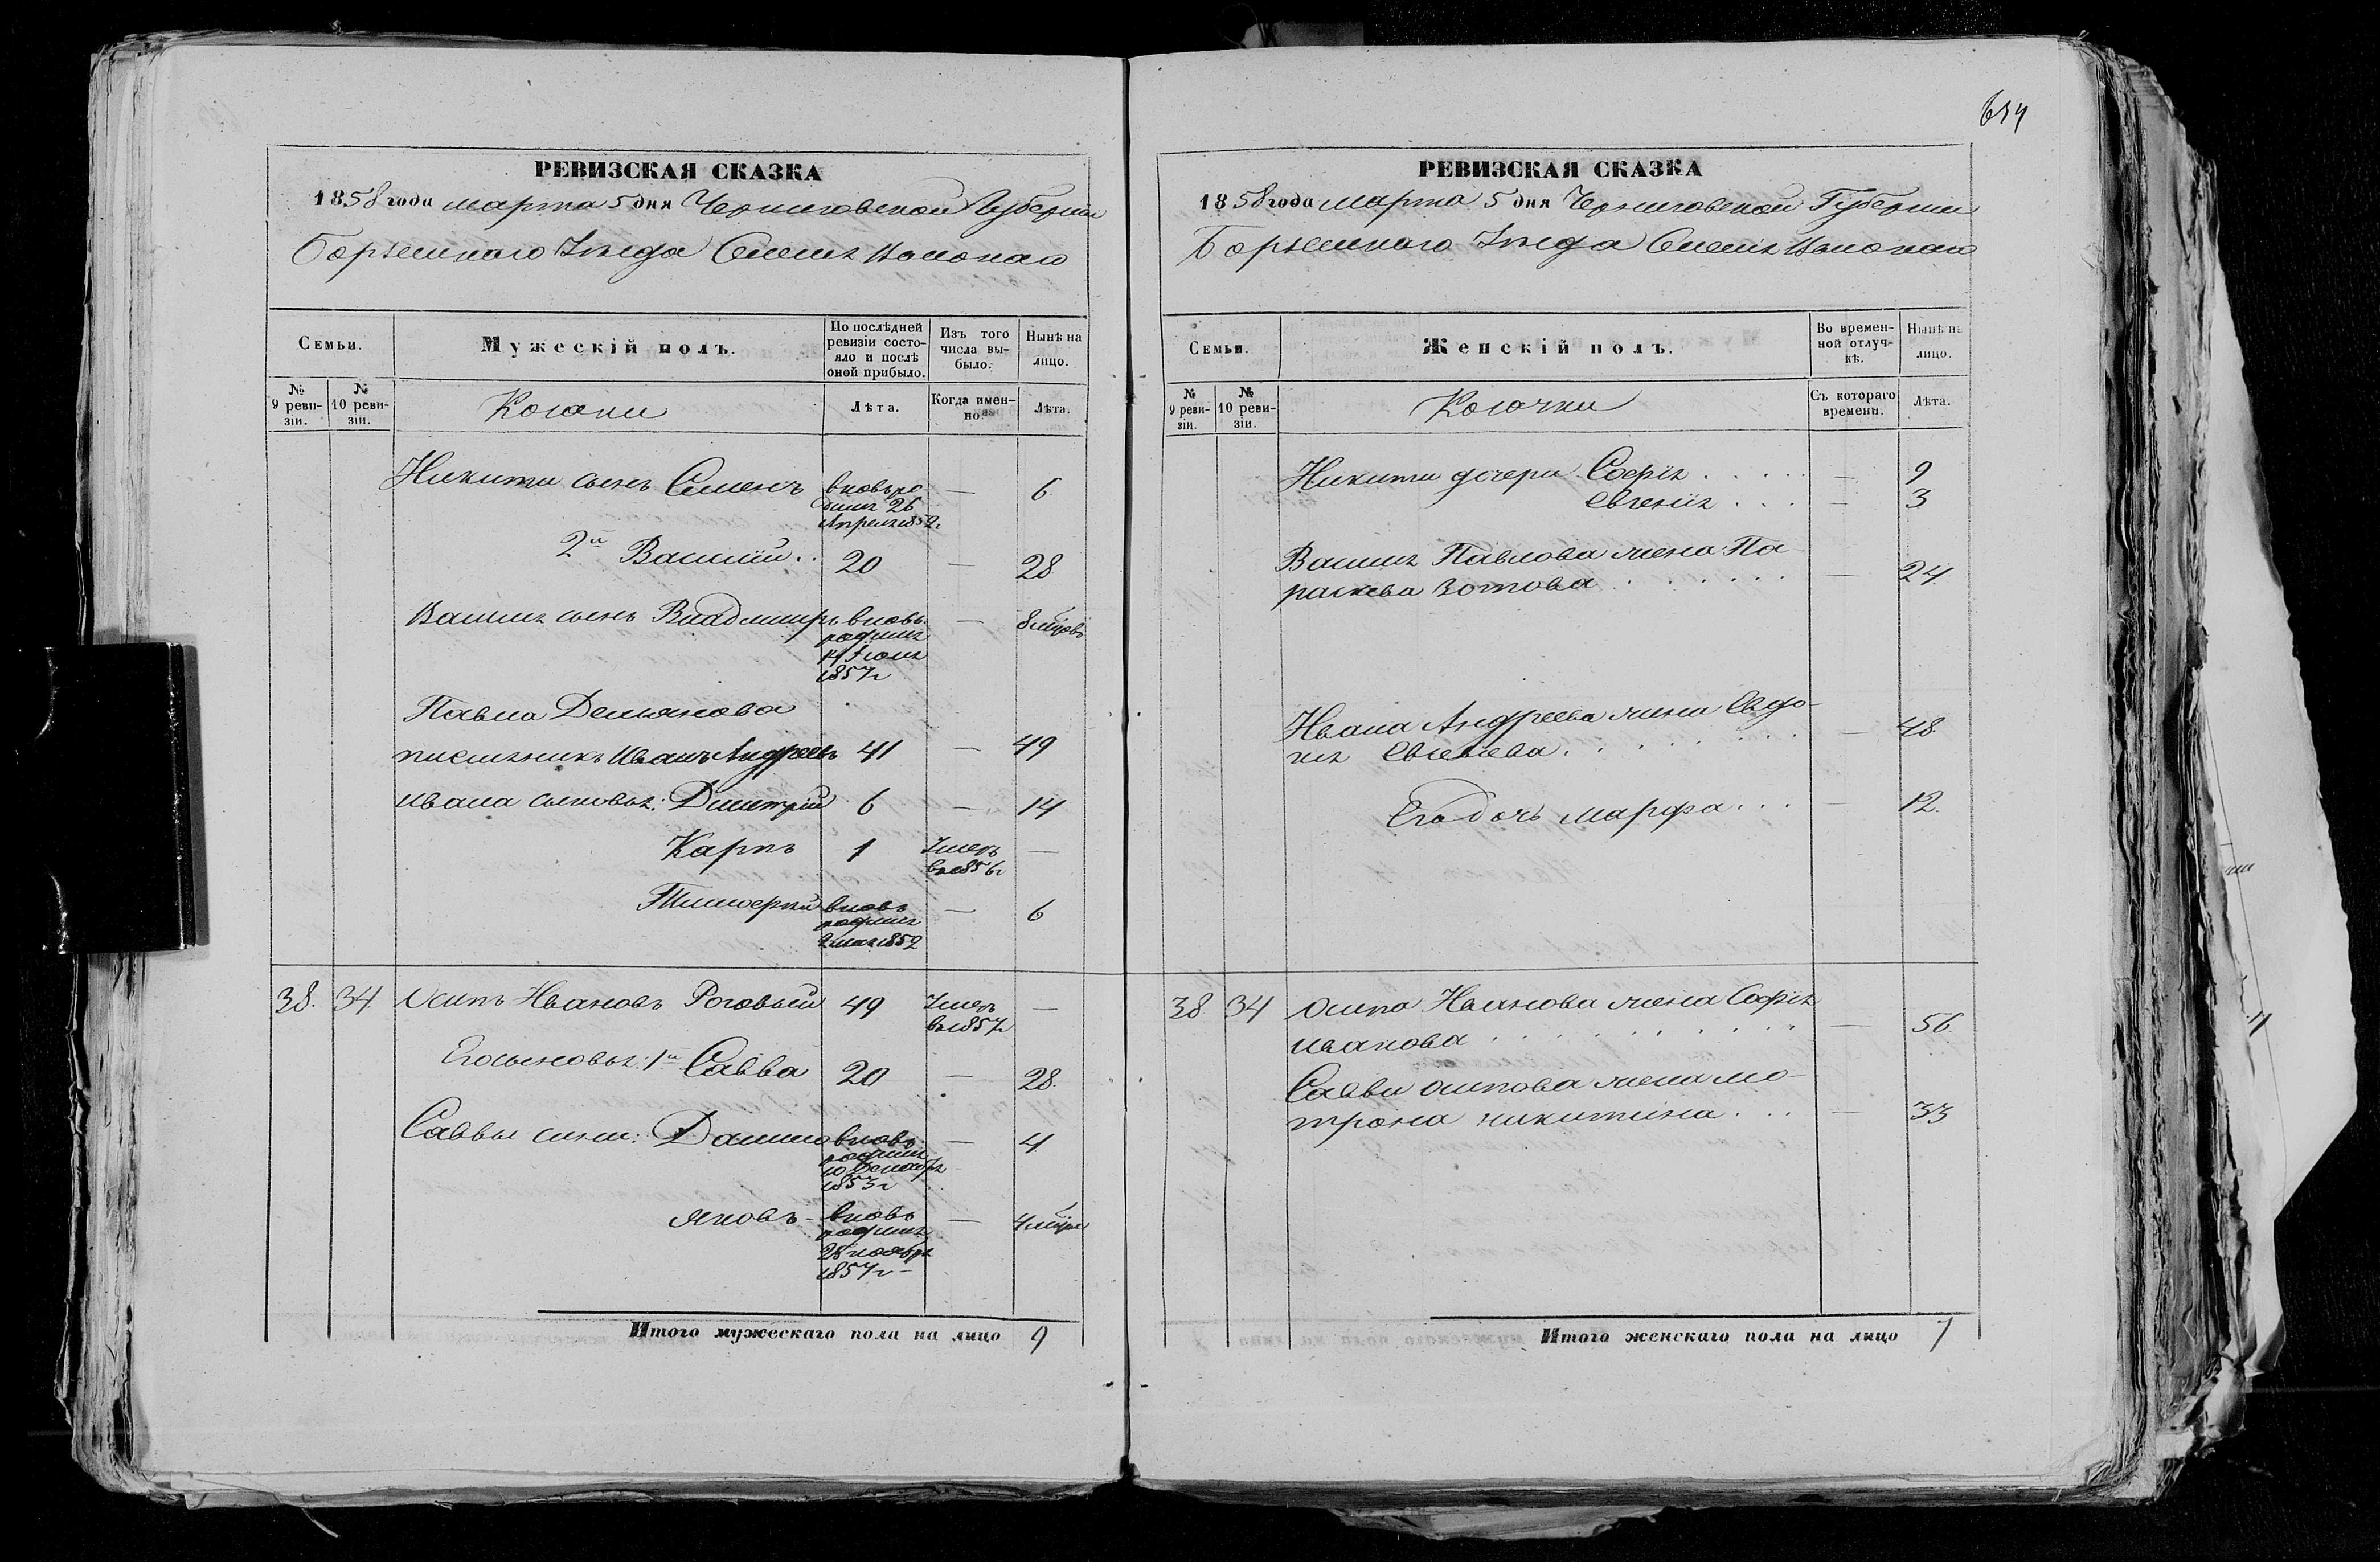 РЕВИЗСКАЯ СКАЗКА
1858 года марта 5 дня Черниговской Губернии
Борзенского Уезда
Семьи.
Мужескій полъ.
По послѣдней ревизіи состояло и послѣ оной прибыло.
Изъ того числа выбыло.
Нынѣ на лицо.
№ 9 ревизіи.
№ 10 ревизіи.
Козаки
Лѣта.
Когда именно.
Лѣта.
Никиты сынъ Семенъ вновь родился 26 Апреля 1852 г — 6
2й Василий .. 20 — 28
Василия сынъ Владимиръ вновь родился Июля 1857 г — 8 мцовъ
Павла Демьянова
племянникъ Иванъ Андреевъ 41 — 49
Ивана сыновья: Димитрий 6 — 14
Карпъ 1 Умеръ в 1856 г —
Тимофей вновь родился 2 мая 1852 — 6
38. 34. Осипъ Ивановъ Роговый 49 Умеръ в 1857 г —
Его сыновья: 1й Савва 20 — 28.
Саввы сыны: Данило вновь родился 10 Декабря 1853 г — 4
Яковъ - вновь родился 28 ноября 1857 г — 4 мцы
Итого мужескаго пола на лицо 9
РЕВИЗСКАЯ СКАЗКА
1858 года марта 5 дня Черниговской Губернии
Борзенского Уезда
Семьи.
Женскій полъ.
Во временной отлучкѣ.
Нынѣ на лицо.
№ 9 ревизіи.
№ 10 ревизіи.
Козачки
Съ котораго времени.
Лѣта.
Никиты дочери София . . . . — 9
Евгения . . . — 3
Василия Павлова жена Па
раскева Зотова . . . . . . . — 24
Ивана Андреева жена Евдо-
кия Евсевіева . . . . . . . — 48.
Его дочь Марфа . . . — 12.
38 34 Осипа Иванова жена София
Иванова . . . . . . . . . — 56.
Саввы Осипова жена Мо-
трона Никитина . . . — 33
Итого женскаго пола на лицо 7